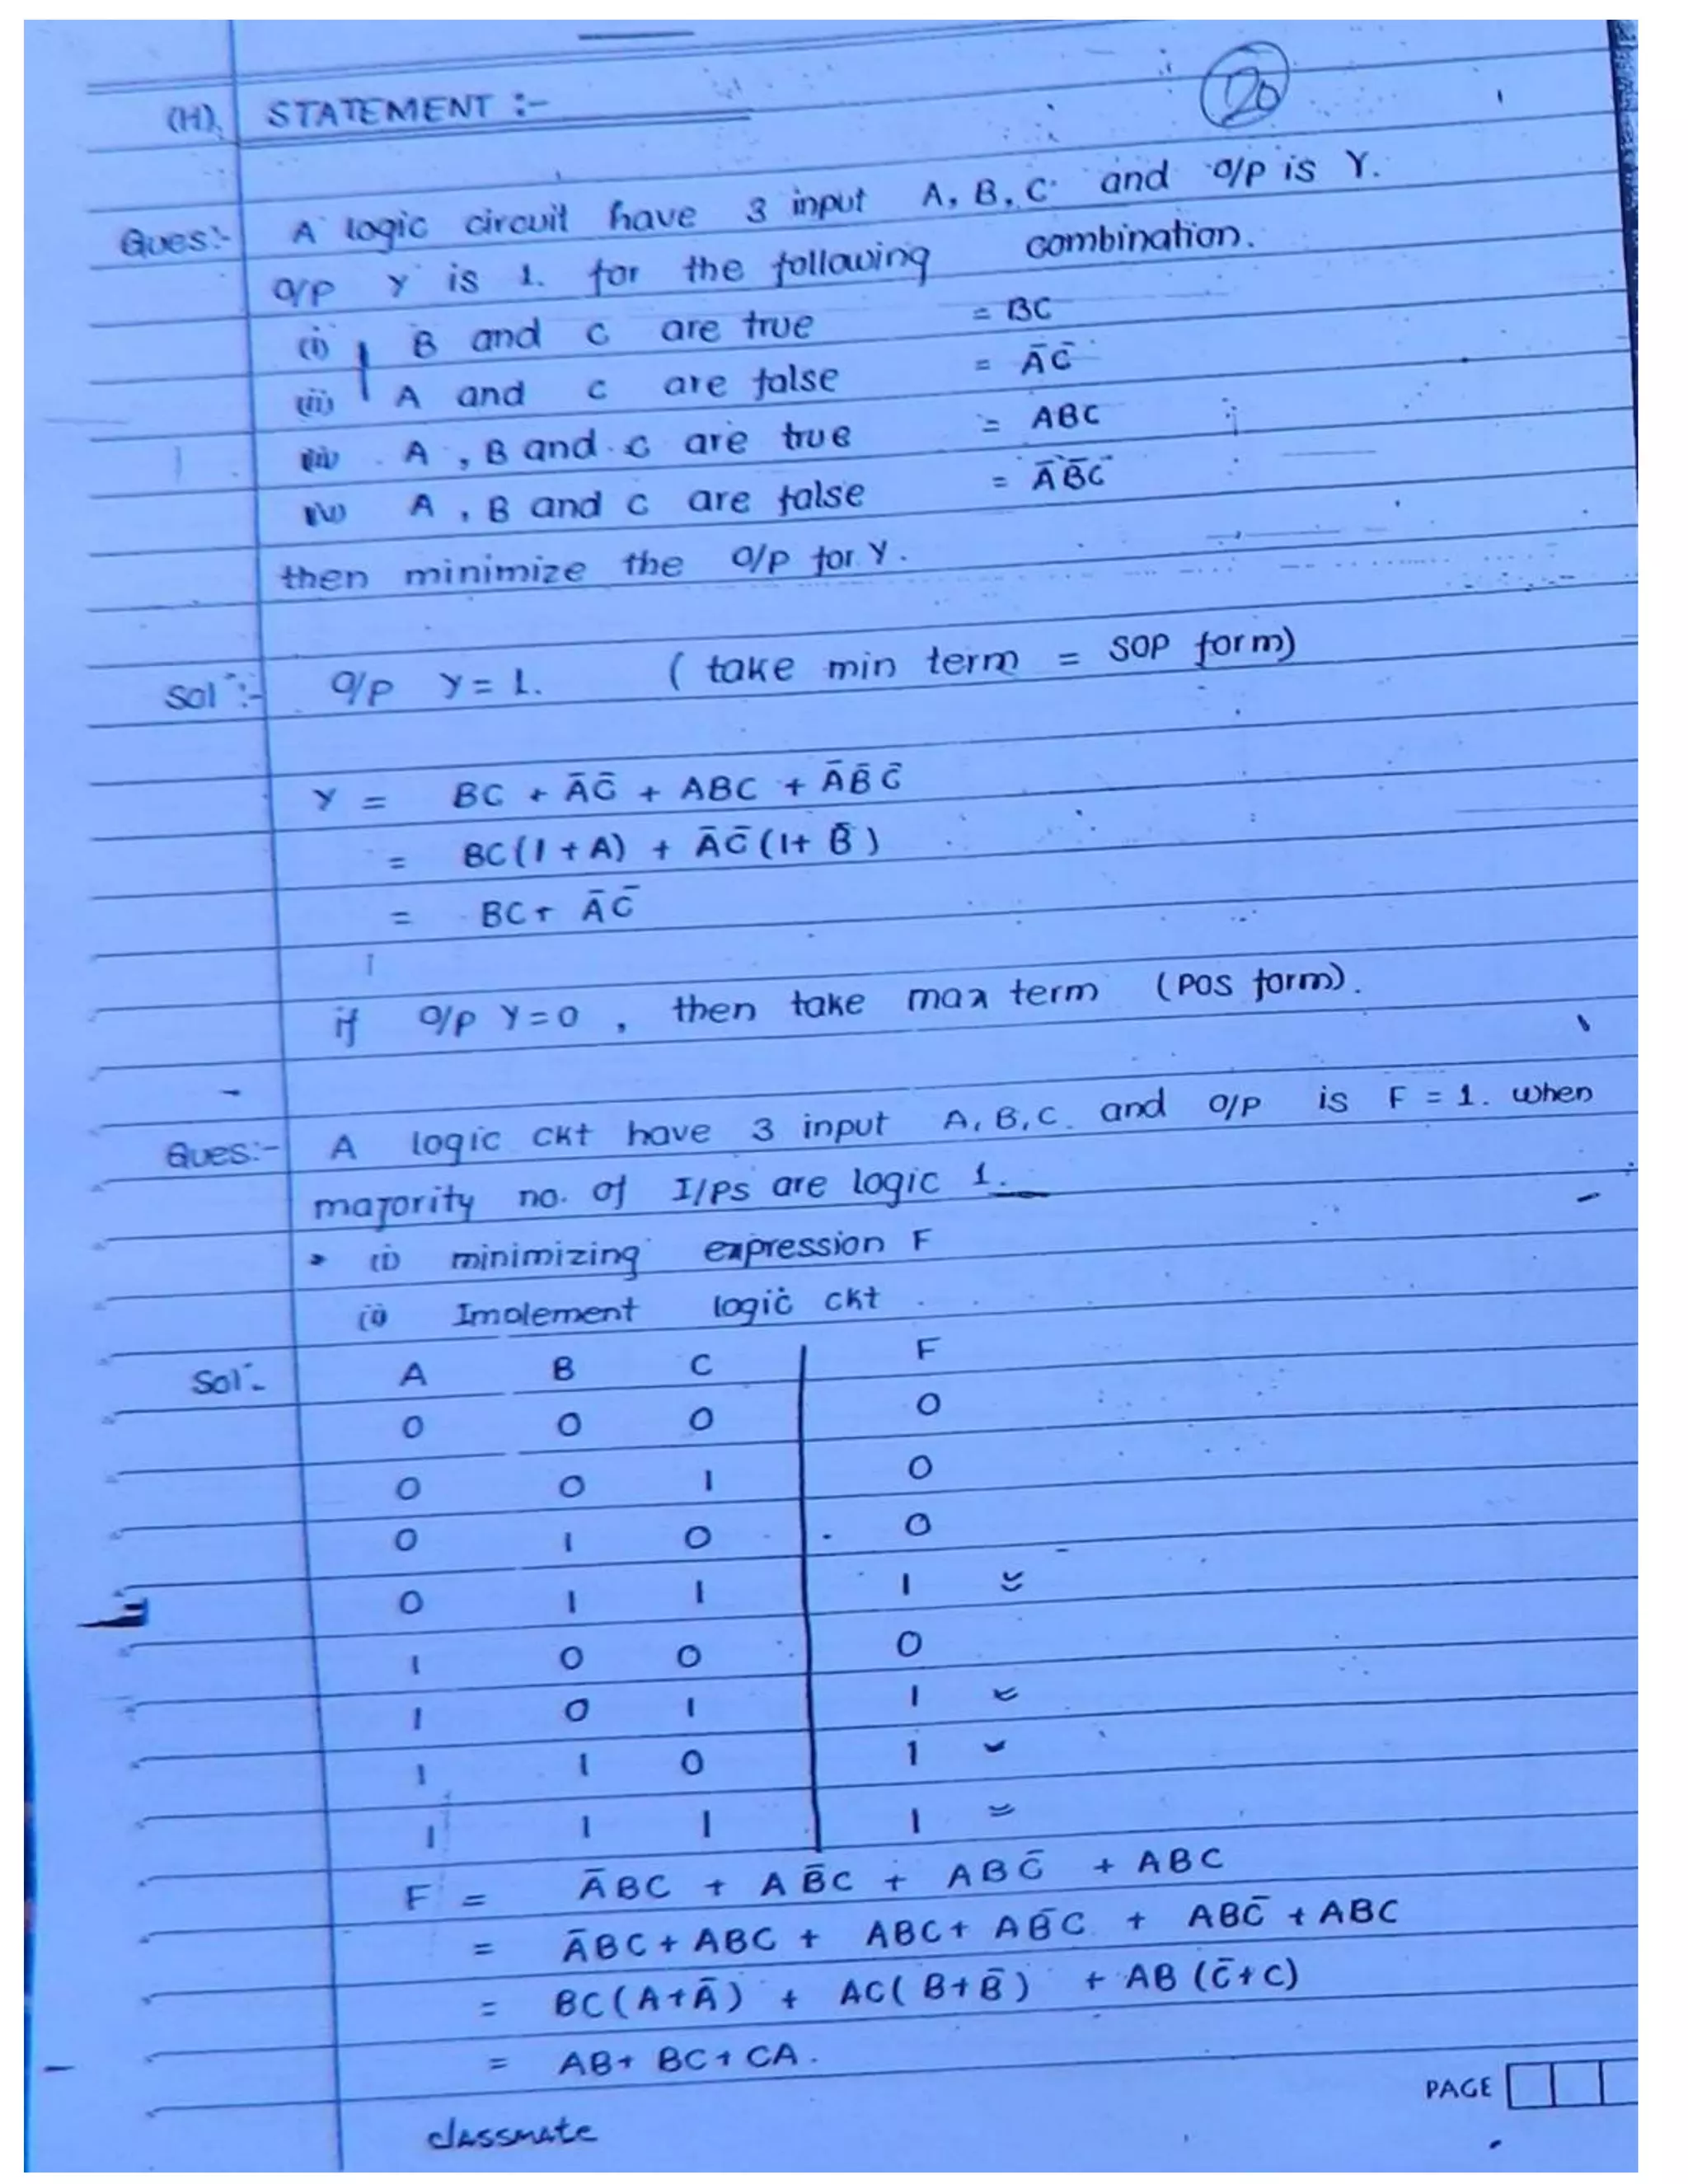 (H). STATEMENT :- 20
Ques:- A logic circuit have 3 input A, B, C and o/p is Y.
o/p Y is 1. for the following combination.
(i) B and C are true = BC
(ii) A and C are false = A̅C̅
(iii) A, B and C are true = ABC
(iv) A, B and C are false = A̅B̅C̅
then minimize the o/p for Y.
Sol:- o/p Y=1. ( take min term = SOP form)
Y = BC + A̅C̅ + ABC + A̅B̅C̅
= BC(1+A) + A̅C̅(1+B̅)
= BC+ A̅C̅
if o/p Y=0, then take max term (POS form).
Ques:- A logic ckt have 3 input A, B, C. and o/p is F = 1. when
majority no. of I/Ps are logic 1.
(i) minimizing expression F
(ii) Imolement logic ckt
Sol:- A B C F
0 0 0 0
0 0 1 0
0 1 0 0
0 1 1 1
1 0 0 0
1 0 1 1
1 1 0 1
1 1 1 1
F = A̅BC + AB̅C + ABC̅ + ABC
= A̅BC + ABC + ABC + AB̅C + ABC̅ + ABC
= BC(A+A̅) + AC(B+B̅) + AB(C̅+C)
= AB+ BC+CA.
PAGE
classmate